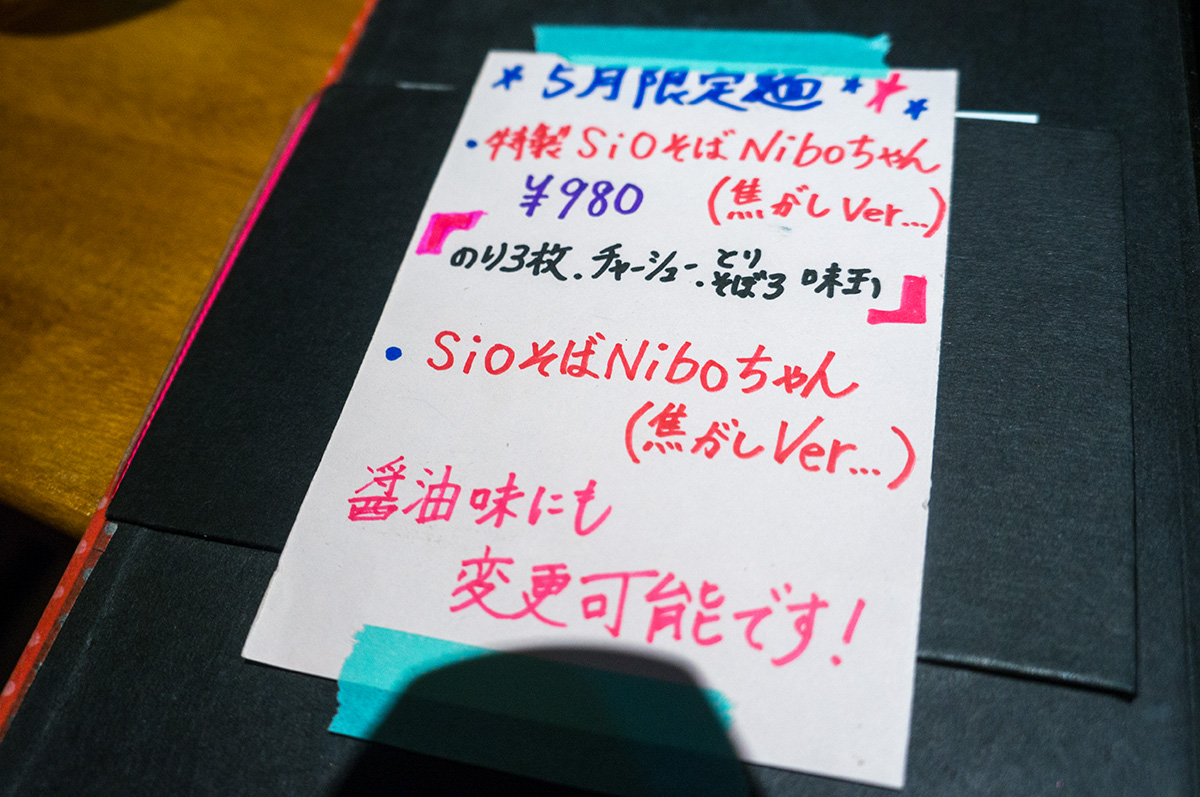 * 5月限定麺 ***
・特製SiOそばNiboちゃん
¥980 (焦がしVer...)
「のり3枚、チャーシュー、とりそぼろ 味玉」
・SiOそばNiboちゃん
(焦がしVer...)
醤油味にも
変更可能です!